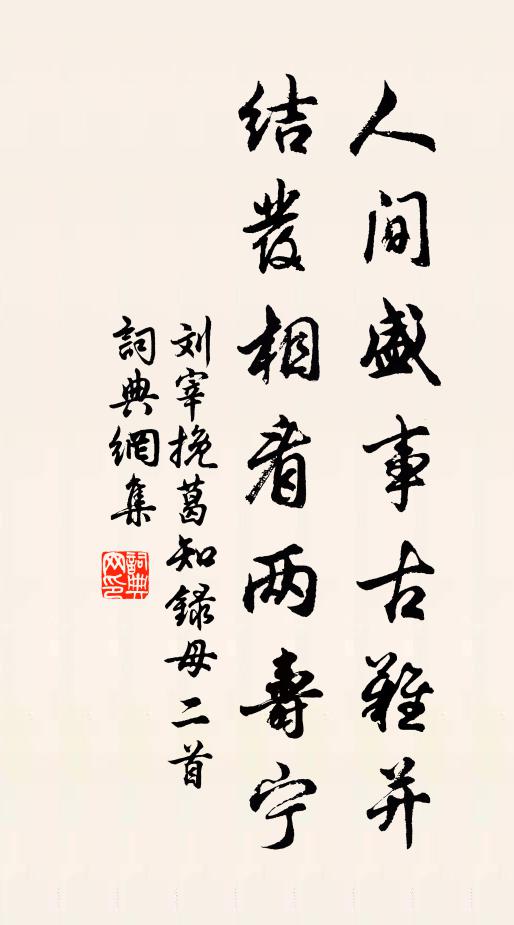 人间盛事古難并
结發相看两壽宁
刘宰挽葛知録母二首
詞典網集
詞典网印